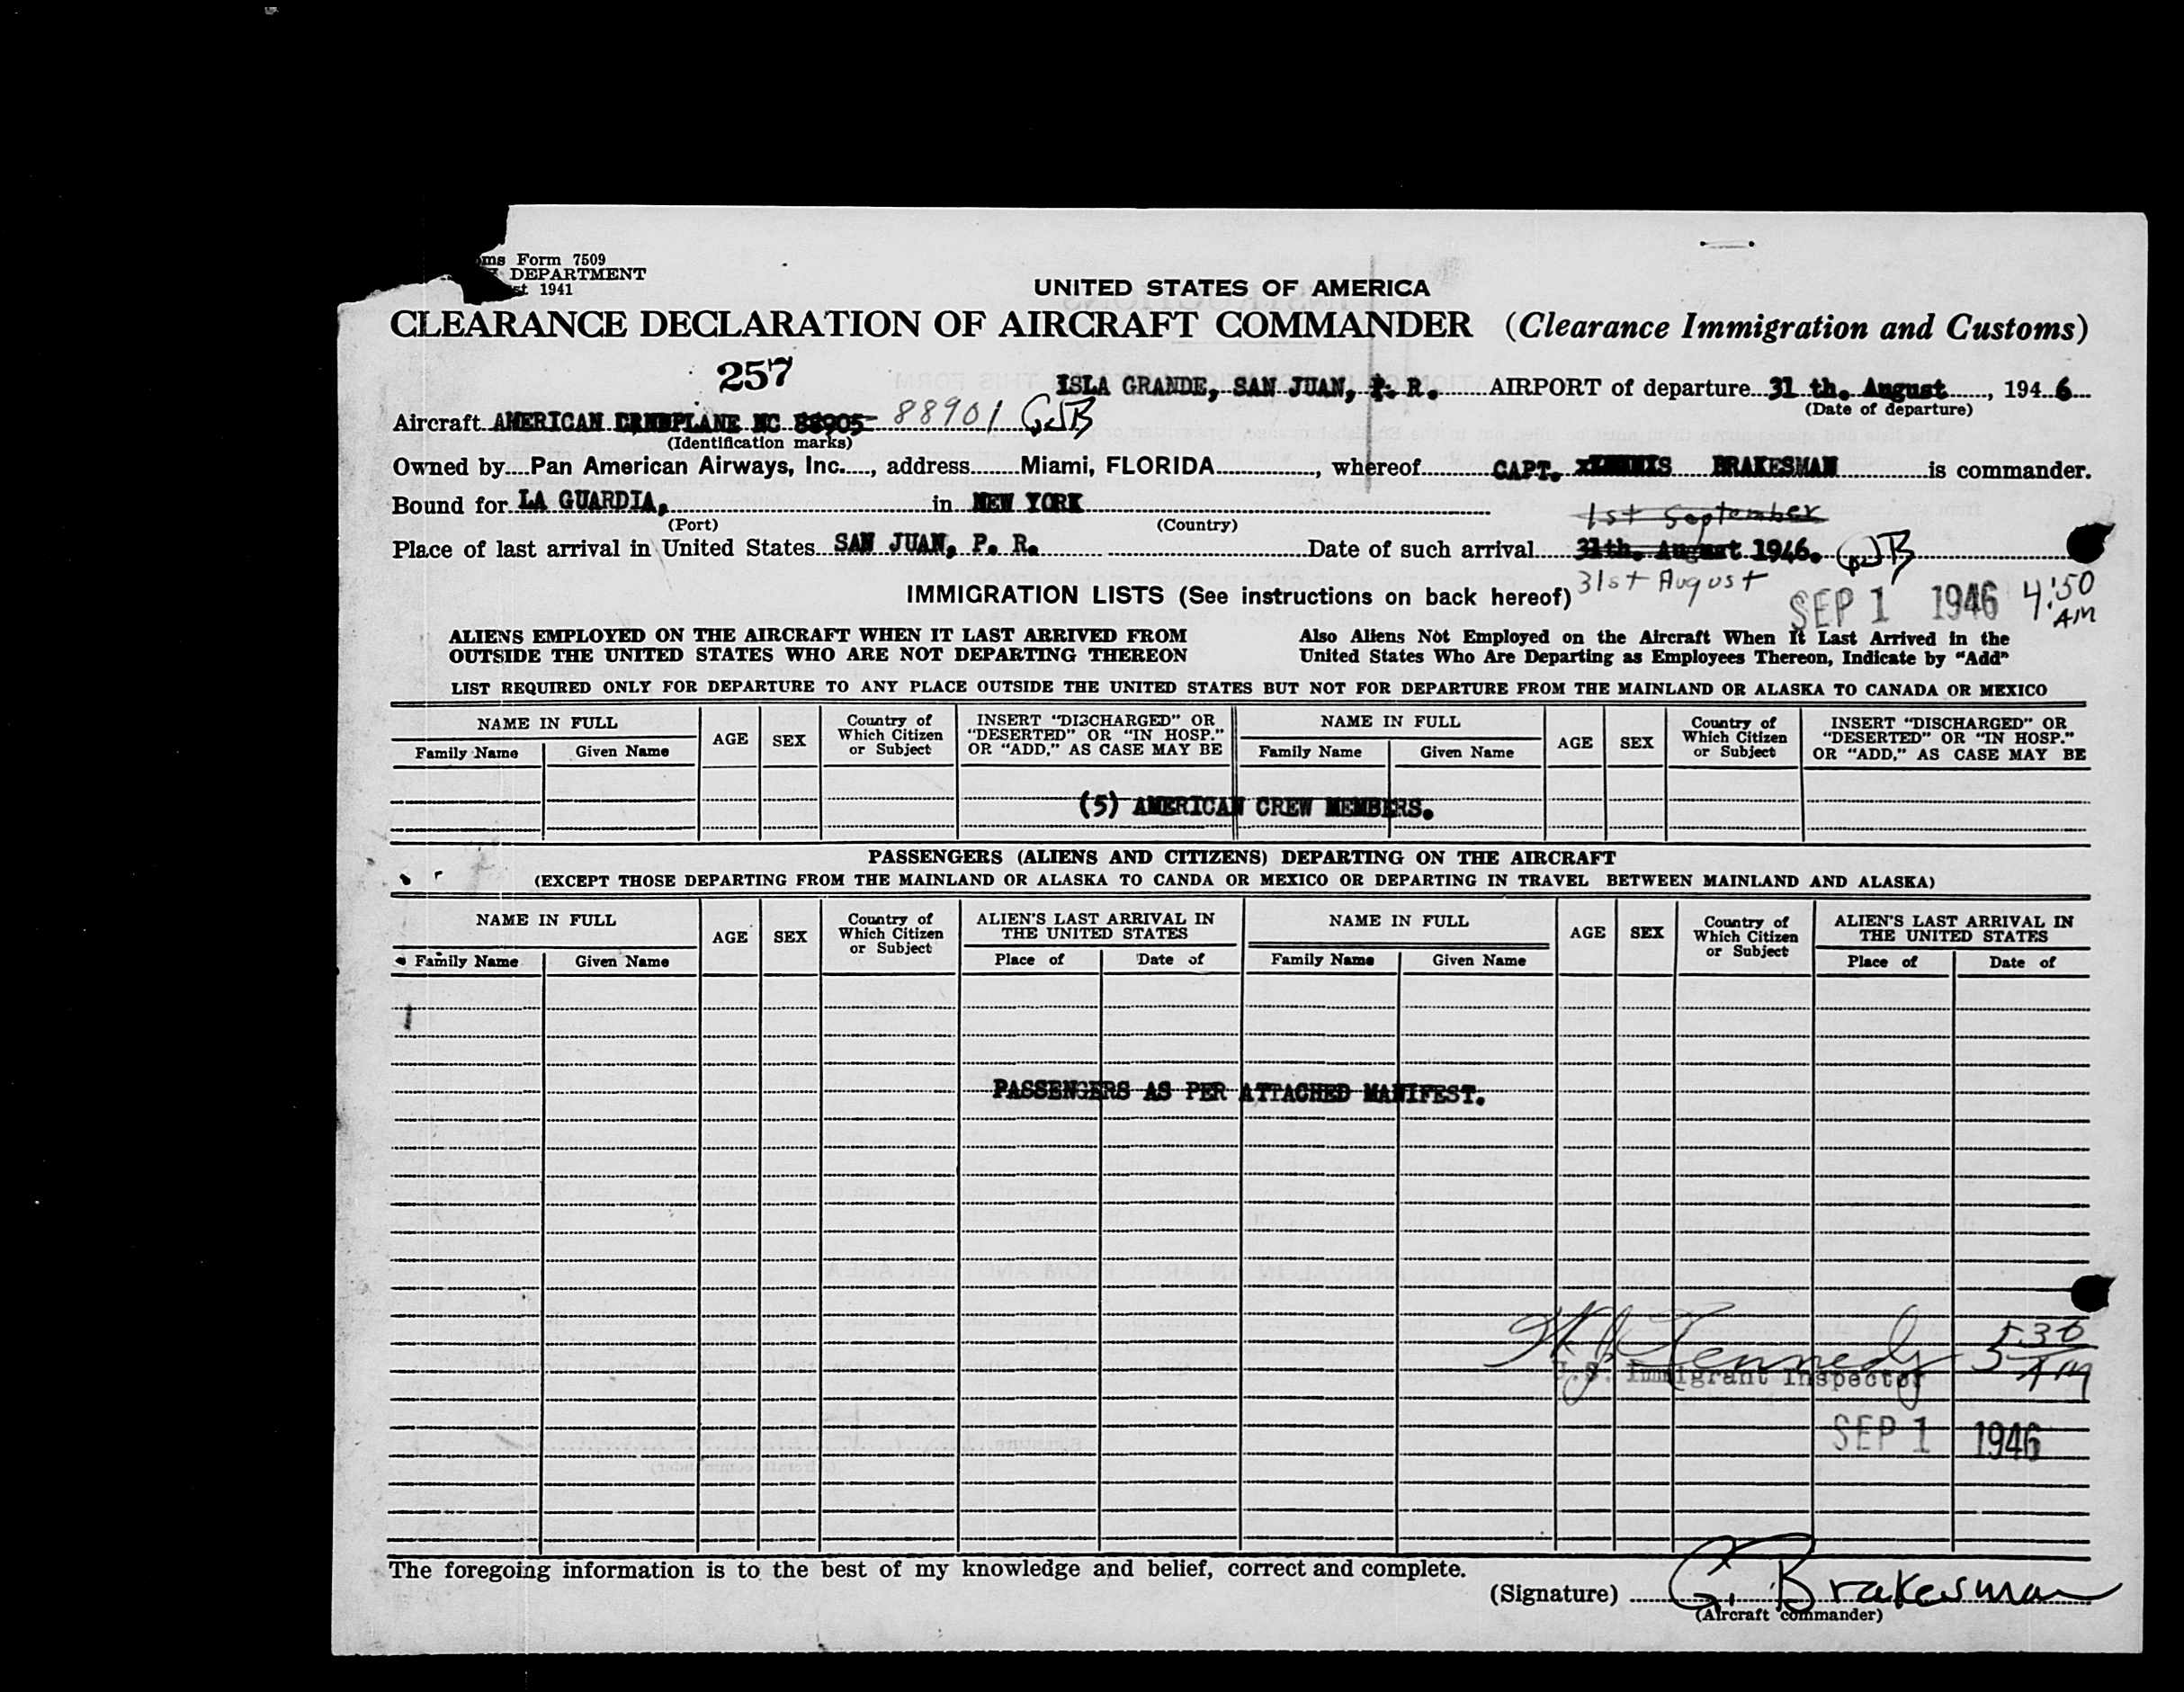 ms Form 7509
DEPARTMENT
st 1941
UNITED STATES OF AMERICA
CLEARANCE DECLARATION OF AIRCRAFT COMMANDER (Clearance Immigration and Customs)
257
ISLA GRANDE, SAN JUAN, P. R. AIRPORT of departure 31 th. August, 194 6
(Date of departure)
Aircraft AMERICAN NC 88905 88901 GJB
(Identification marks)
Owned by Pan American Airways, Inc., address Miami, FLORIDA, whereof CAPT. BRAKESMAN is commander.
Bound for LA GUARDIA, in NEW YORK
(Port) (Country)
1st September
Place of last arrival in United States SAN JUAN, P. R. Date of such arrival 31th. August 1946. GJB
31st August
IMMIGRATION LISTS (See instructions on back hereof)
SEP 1 1946 4:50 AM
ALIENS EMPLOYED ON THE AIRCRAFT WHEN IT LAST ARRIVED FROM
OUTSIDE THE UNITED STATES WHO ARE NOT DEPARTING THEREON
Also Aliens Not Employed on the Aircraft When It Last Arrived in the
United States Who Are Departing as Employees Thereon, Indicate by "Add"
LIST REQUIRED ONLY FOR DEPARTURE TO ANY PLACE OUTSIDE THE UNITED STATES BUT NOT FOR DEPARTURE FROM THE MAINLAND OR ALASKA TO CANADA OR MEXICO
NAME IN FULL
Family Name Given Name
AGE
SEX
Country of
Which Citizen
or Subject
INSERT "DISCHARGED" OR
"DESERTED" OR "IN HOSP."
OR "ADD," AS CASE MAY BE
NAME IN FULL
Family Name Given Name
AGE
SEX
Country of
Which Citizen
or Subject
INSERT "DISCHARGED" OR
"DESERTED" OR "IN HOSP."
OR "ADD," AS CASE MAY BE
(5) AMERICAN CREW MEMBERS.
PASSENGERS (ALIENS AND CITIZENS) DEPARTING ON THE AIRCRAFT
(EXCEPT THOSE DEPARTING FROM THE MAINLAND OR ALASKA TO CANDA OR MEXICO OR DEPARTING IN TRAVEL BETWEEN MAINLAND AND ALASKA)
NAME IN FULL
Family Name Given Name
AGE
SEX
Country of
Which Citizen
or Subject
ALIEN'S LAST ARRIVAL IN
THE UNITED STATES
Place of Date of
NAME IN FULL
Family Name Given Name
AGE
SEX
Country of
Which Citizen
or Subject
ALIEN'S LAST ARRIVAL IN
THE UNITED STATES
Place of Date of
PASSENGERS AS PER ATTACHED MANIFEST.
Kennedy 530
U.S. Immigrant Inspector AM
SEP 1 1946
The foregoing information is to the best of my knowledge and belief, correct and complete.
(Signature) G. Brakesman
(Aircraft commander)